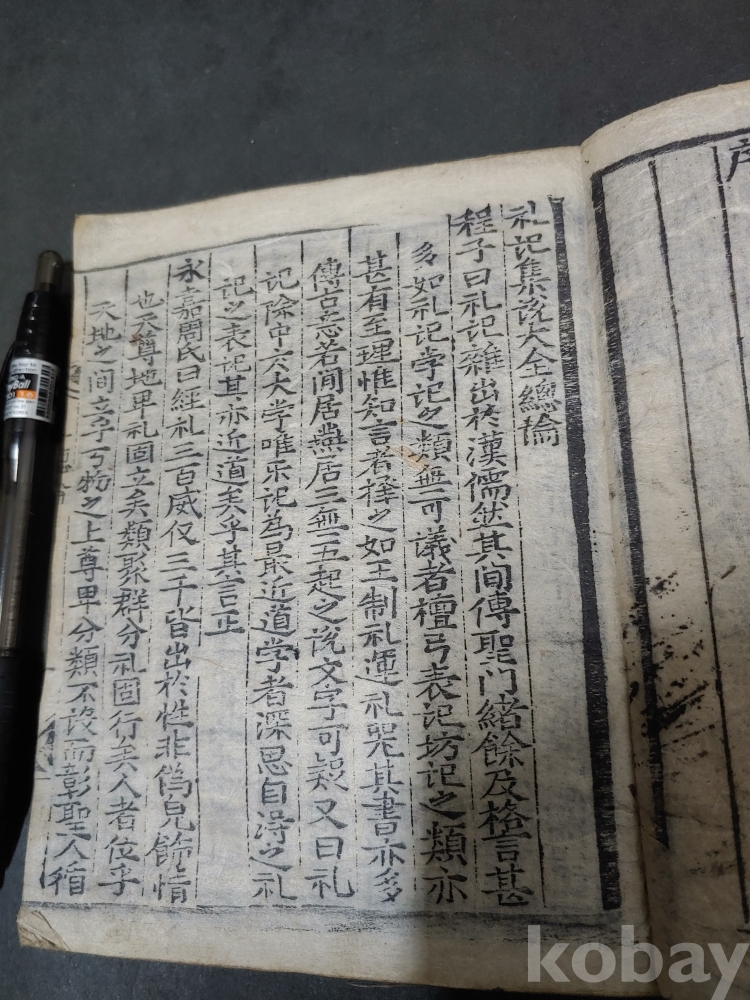 礼记集说大全總論
程子曰礼记雜出於漢儒然其间傳聖门緒餘及格言甚
多如礼记学记之類無可議者檀弓表记坊记之類亦
甚有至理惟知言者擇之如王制礼運礼器其書亦多
傳古意若间居燕居三無五起之说文字可疑又曰礼
记除中庸大学唯乐记为最近道学者深思自得之礼
记之表记其亦近道矣乎其言正
永嘉周氏曰經礼三百威仪三千皆出於性非偽皃飾情
也天尊地卑礼固立矣類聚群分礼固行矣人者位乎
天地之间立乎万物之上尊卑分類不设而彰聖人循
kobay